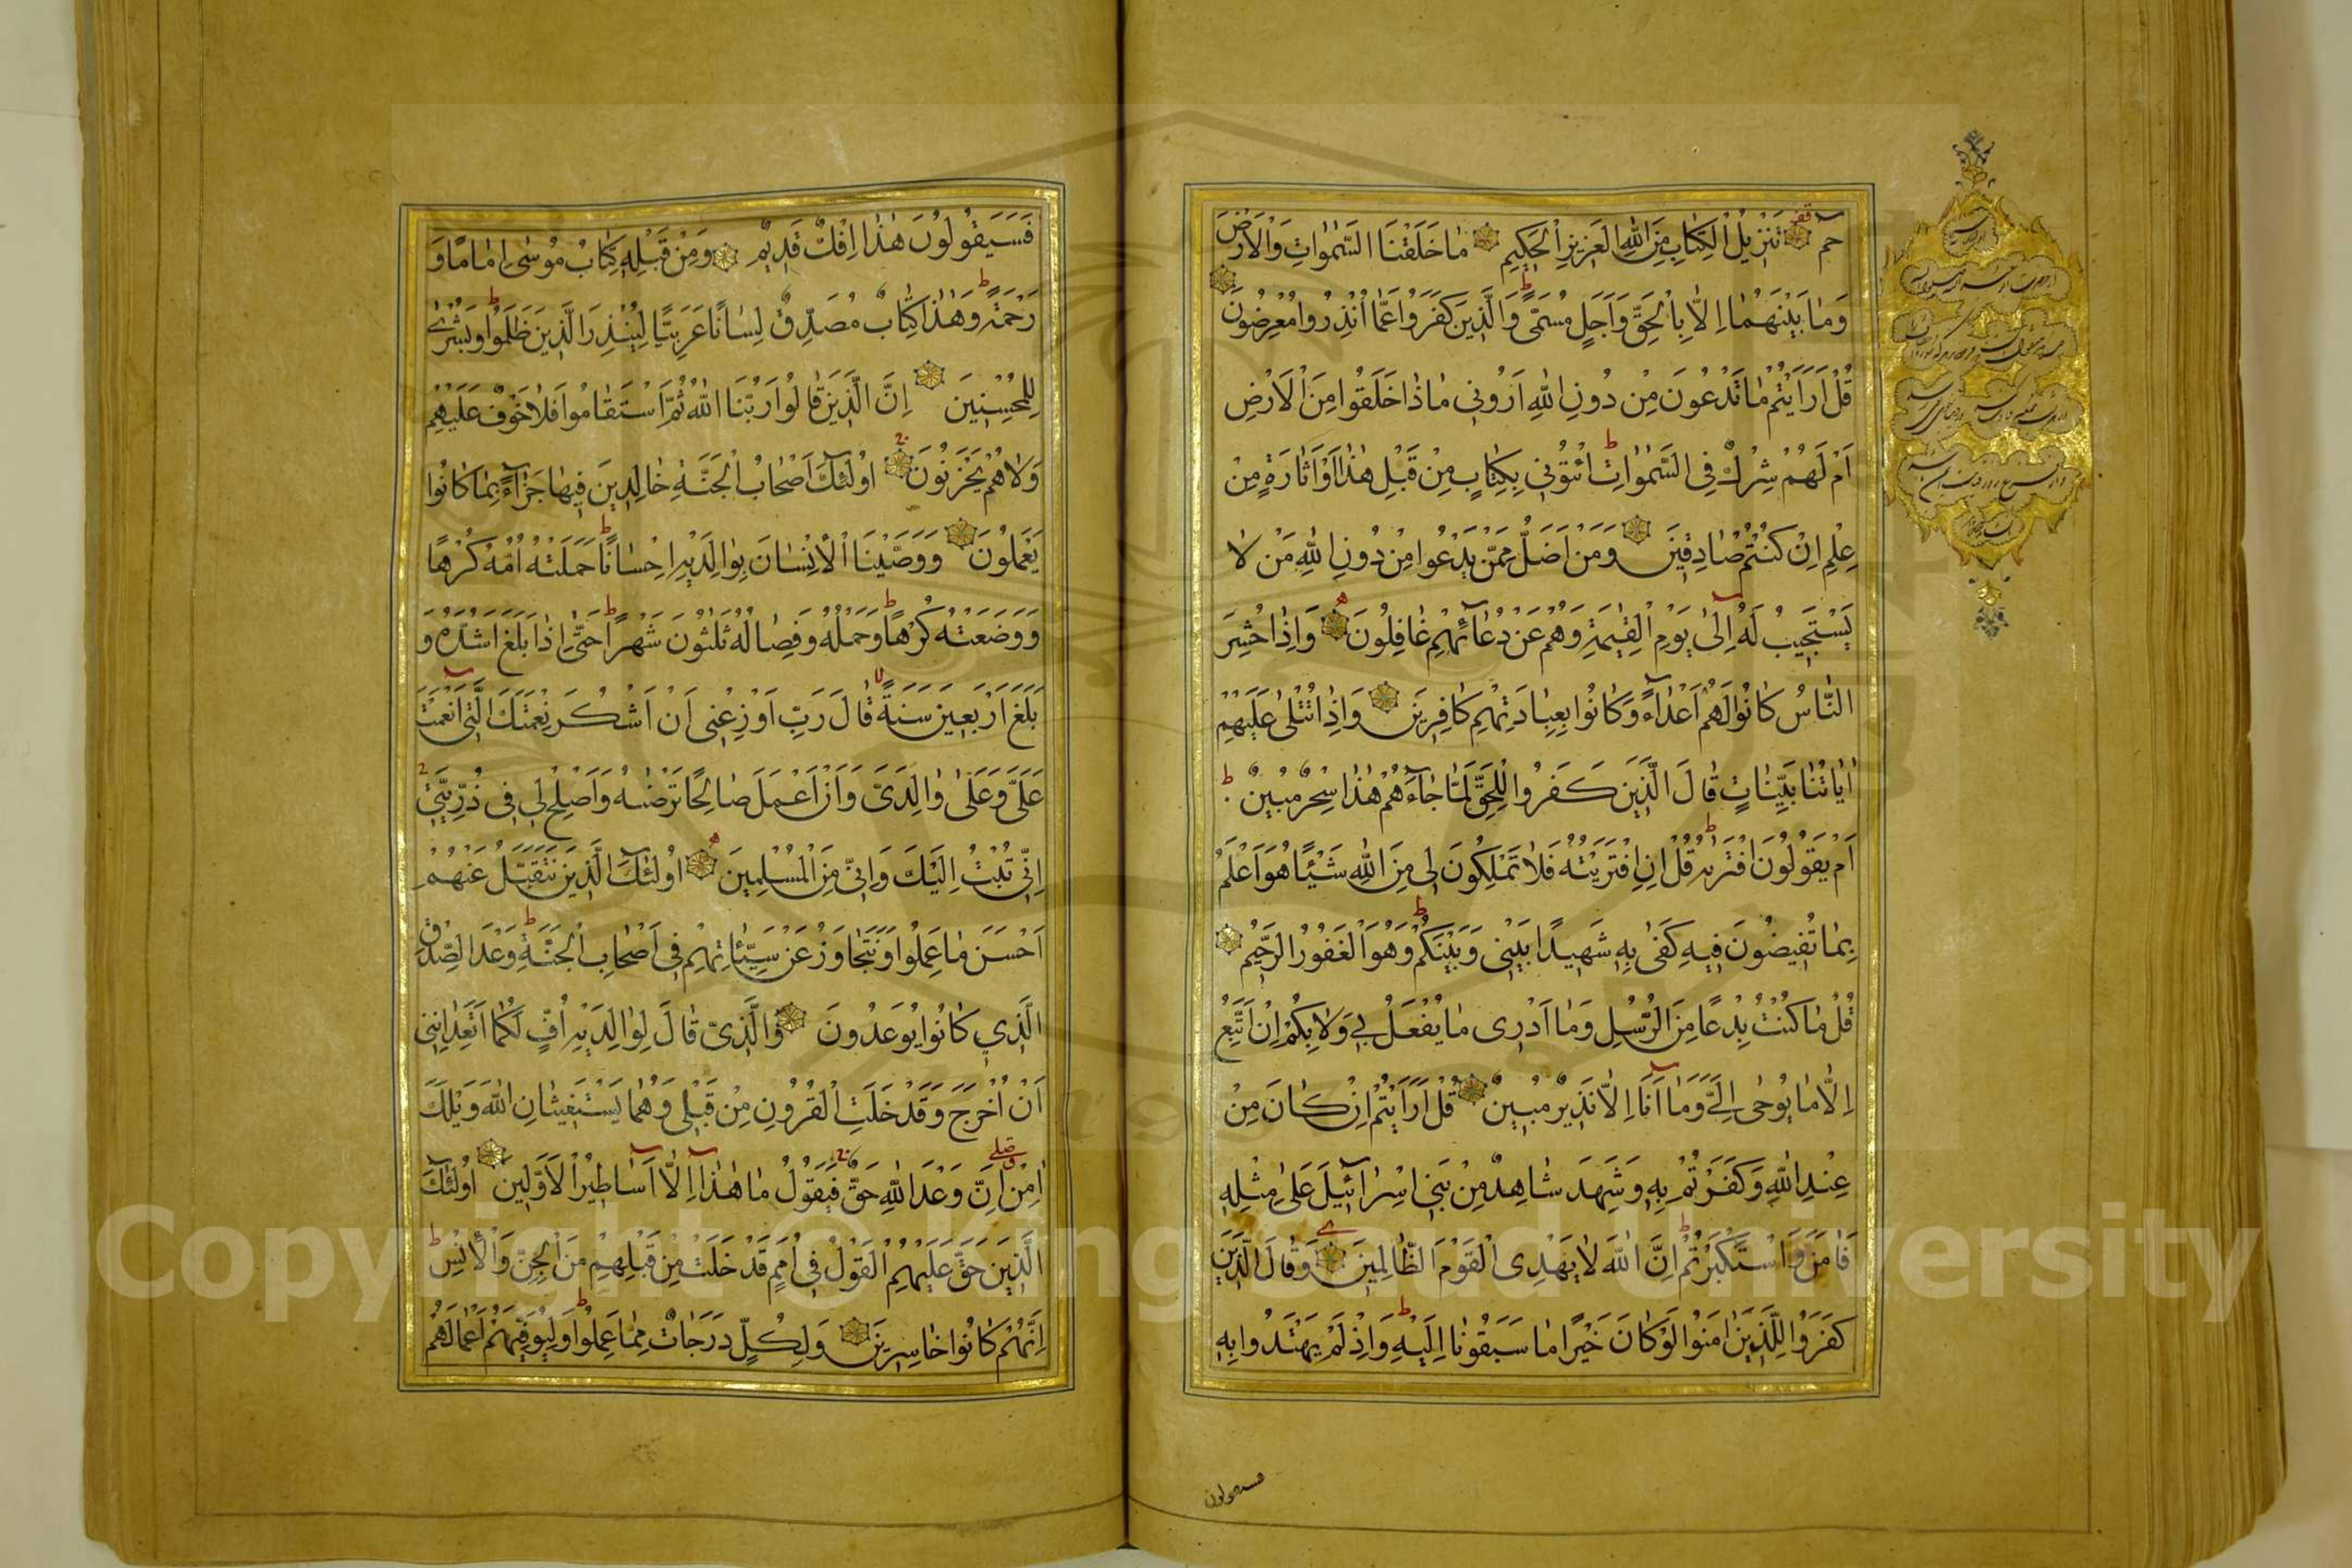 حم تَنْزِيلُ الْكِتَابِ مِنَ اللهِ الْعَزِيزِ الْحَكِيمِ مَا خَلَقْنَا السَّمٰوَاتِ وَالْاَرْضَ
وَمَا بَيْنَهُمَا اِلَّا بِالْحَقِّ وَاَجَلٍ مُسَمًّى وَالَّذِينَ كَفَرُوا عَمَّا اُنْذِرُوا مُعْرِضُونَ
قُلْ اَرَاَيْتُمْ مَا تَدْعُونَ مِنْ دُونِ اللهِ اَرُونِي مَاذَا خَلَقُوا مِنَ الْاَرْضِ
اَمْ لَهُمْ شِرْكٌ فِي السَّمٰوَاتِ ائْتُونِي بِكِتَابٍ مِنْ قَبْلِ هٰذَا اَوْ اَثَارَةٍ مِنْ
عِلْمٍ اِنْ كُنْتُمْ صَادِقِينَ وَمَنْ اَضَلُّ مِمَّنْ يَدْعُوا مِنْ دُونِ اللهِ مَنْ لَا
يَسْتَجِيبُ لَهُ اِلٰى يَوْمِ الْقِيٰمَةِ وَهُمْ عَنْ دُعَائِهِمْ غَافِلُونَ وَاِذَا حُشِرَ
النَّاسُ كَانُوا لَهُمْ اَعْدَاءً وَكَانُوا بِعِبَادَتِهِمْ كَافِرِينَ وَاِذَا تُتْلٰى عَلَيْهِمْ
اٰيَاتُنَا بَيِّنَاتٍ قَالَ الَّذِينَ كَفَرُوا لِلْحَقِّ لَمَّا جَاءَهُمْ هٰذَا سِحْرٌ مُبِينٌ
اَمْ يَقُولُونَ افْتَرٰيهُ قُلْ اِنِ افْتَرَيْتُهُ فَلَا تَمْلِكُونَ لِي مِنَ اللهِ شَيْئًا هُوَ اَعْلَمُ
بِمَا تُفِيضُونَ فِيهِ كَفٰى بِهِ شَهِيدًا بَيْنِي وَبَيْنَكُمْ وَهُوَ الْغَفُورُ الرَّحِيمُ
قُلْ مَا كُنْتُ بِدْعًا مِنَ الرُّسُلِ وَمَا اَدْرِي مَا يُفْعَلُ بِي وَلَا بِكُمْ اِنْ اَتَّبِعُ
اِلَّا مَا يُوحٰى اِلَيَّ وَمَا اَنَا اِلَّا نَذِيرٌ مُبِينٌ قُلْ اَرَاَيْتُمْ اِنْ كَانَ مِنْ
عِنْدِ اللهِ وَكَفَرْتُمْ بِهِ وَشَهِدَ شَاهِدٌ مِنْ بَنِي اِسْرَائِيلَ عَلٰى مِثْلِهِ
فَاٰمَنَ وَاسْتَكْبَرْتُمْ اِنَّ اللهَ لَا يَهْدِي الْقَوْمَ الظَّالِمِينَ وَقَالَ الَّذِينَ
كَفَرُوا لِلَّذِينَ اٰمَنُوا لَوْ كَانَ خَيْرًا مَا سَبَقُونَا اِلَيْهِ وَاِذْ لَمْ يَهْتَدُوا بِهِ
فسيقولون
فَسَيَقُولُونَ هٰذَا اِفْكٌ قَدِيمٌ وَمِنْ قَبْلِهِ كِتَابُ مُوسٰى اِمَامًا وَ
رَحْمَةً وَهٰذَا كِتَابٌ مُصَدِّقٌ لِسَانًا عَرَبِيًّا لِيُنْذِرَ الَّذِينَ ظَلَمُوا وَبُشْرٰى
لِلْمُحْسِنِينَ اِنَّ الَّذِينَ قَالُوا رَبُّنَا اللهُ ثُمَّ اسْتَقَامُوا فَلَا خَوْفٌ عَلَيْهِمْ
وَلَا هُمْ يَحْزَنُونَ اُولٰئِكَ اَصْحَابُ الْجَنَّةِ خَالِدِينَ فِيهَا جَزَاءً بِمَا كَانُوا
يَعْمَلُونَ وَوَصَّيْنَا الْاِنْسَانَ بِوَالِدَيْهِ اِحْسَانًا حَمَلَتْهُ اُمُّهُ كُرْهًا
وَوَضَعَتْهُ كُرْهًا وَحَمْلُهُ وَفِصَالُهُ ثَلٰثُونَ شَهْرًا حَتّٰى اِذَا بَلَغَ اَشُدَّهُ وَ
بَلَغَ اَرْبَعِينَ سَنَةً قَالَ رَبِّ اَوْزِعْنِي اَنْ اَشْكُرَ نِعْمَتَكَ الَّتِي اَنْعَمْتَ
عَلَيَّ وَعَلٰى وَالِدَيَّ وَاَنْ اَعْمَلَ صَالِحًا تَرْضٰيهُ وَاَصْلِحْ لِي فِي ذُرِّيَّتِي
اِنِّي تُبْتُ اِلَيْكَ وَاِنِّي مِنَ الْمُسْلِمِينَ اُولٰئِكَ الَّذِينَ نَتَقَبَّلُ عَنْهُمْ
اَحْسَنَ مَا عَمِلُوا وَنَتَجَاوَزُ عَنْ سَيِّئَاتِهِمْ فِي اَصْحَابِ الْجَنَّةِ وَعْدَ الصِّدْقِ
الَّذِي كَانُوا يُوعَدُونَ وَالَّذِي قَالَ لِوَالِدَيْهِ اُفٍّ لَكُمَا اَتَعِدَانِنِي
اَنْ اُخْرَجَ وَقَدْ خَلَتِ الْقُرُونُ مِنْ قَبْلِي وَهُمَا يَسْتَغِيثَانِ اللهَ وَيْلَكَ
اٰمِنْ اِنَّ وَعْدَ اللهِ حَقٌّ فَيَقُولُ مَا هٰذَا اِلَّا اَسَاطِيرُ الْاَوَّلِينَ اُولٰئِكَ
الَّذِينَ حَقَّ عَلَيْهِمُ الْقَوْلُ فِي اُمَمٍ قَدْ خَلَتْ مِنْ قَبْلِهِمْ مِنَ الْجِنِّ وَالْاِنْسِ
اِنَّهُمْ كَانُوا خَاسِرِينَ وَلِكُلٍّ دَرَجَاتٌ مِمَّا عَمِلُوا وَلِيُوَفِّيَهُمْ اَعْمَالَهُمْ
Copyright © King Saud University